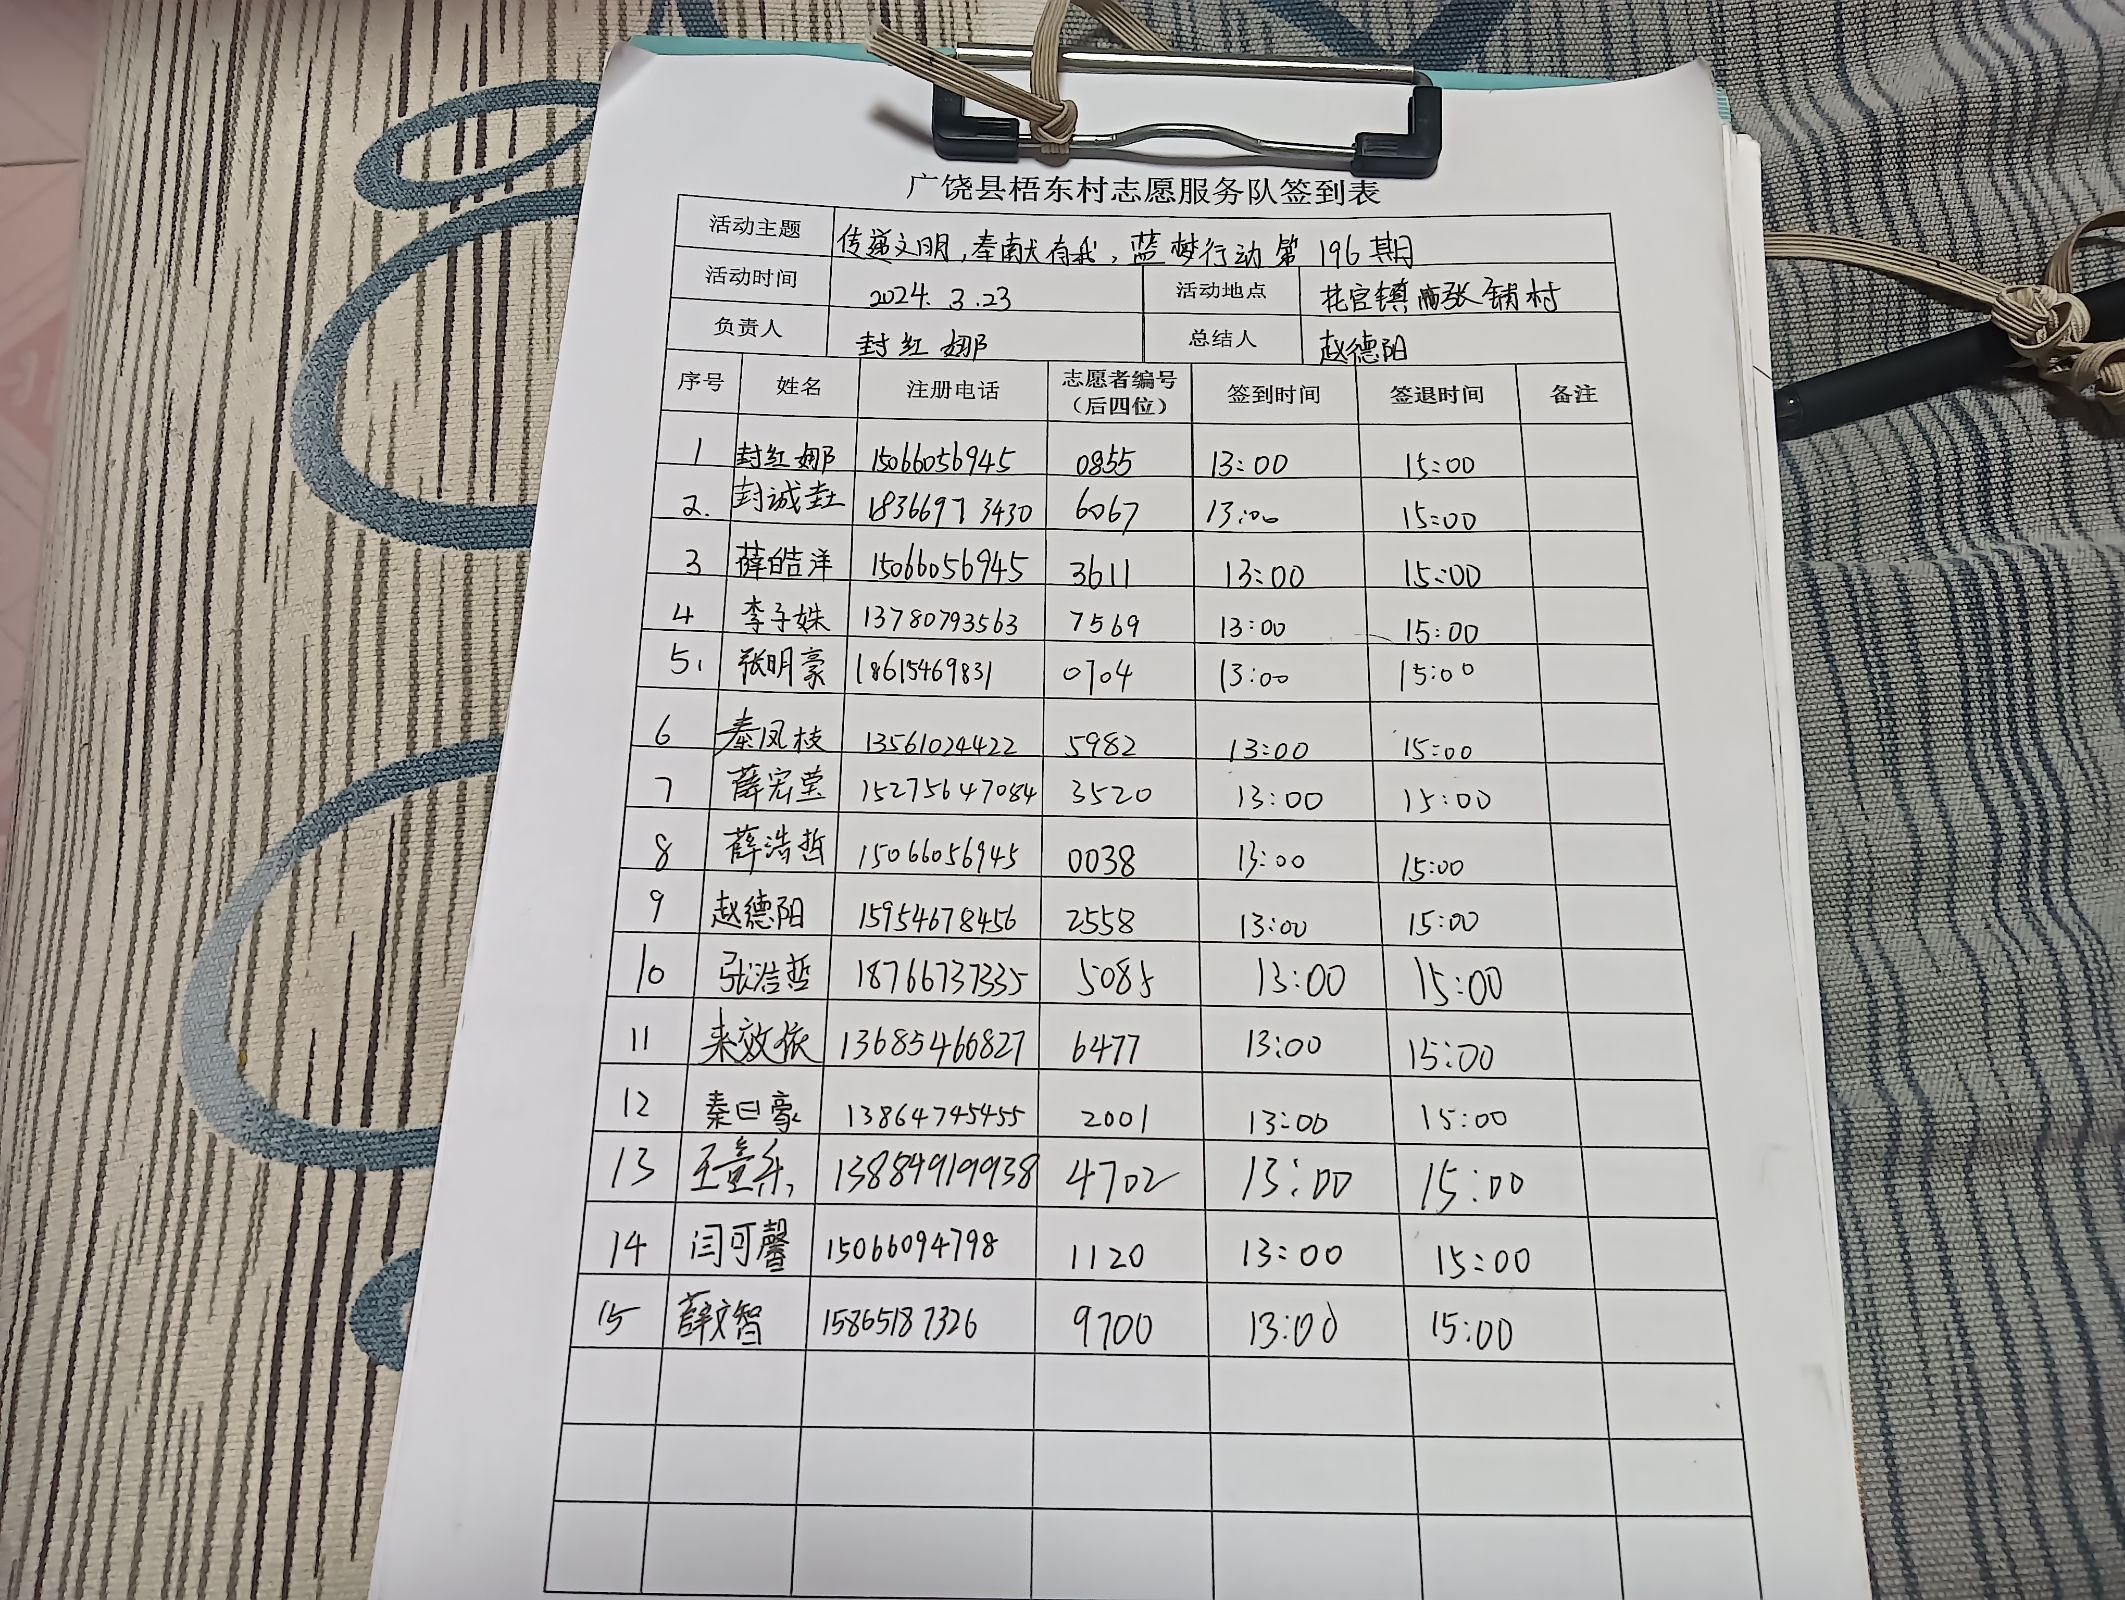 广饶县梧东村志愿服务队签到表
活动主题 传递文明,奉献有我,蓝梦行动第196期
活动时间 2024.3.23 活动地点 花官镇南张铺村
负责人 封红娜 总结人 赵德阳
序号 姓名 注册电话 志愿者编号(后四位) 签到时间 签退时间 备注
1 封红娜 15066056945 0855 13:00 15:00
2. 封诚 18366973430 6067 13:00 15:00
3 薛皓洋 15066056945 3611 13:00 15:00
4 李子姝 13780793563 7569 13:00 15:00
5. 张明豪 18615469831 0704 13:00 15:00
6 秦凤枝 13561024422 5982 13:00 15:00
7 薛宏莹 15275647084 3520 13:00 15:00
8 薛浩哲 15066056945 0038 13:00 15:00
9 赵德阳 15954678456 2558 13:00 15:00
10 张浩哲 18766737335 5085 13:00 15:00
11 来效依 13685460827 6477 13:00 15:00
12 秦曰豪 13864745455 2001 13:00 15:00
13 王童乐 13884919938 4702 13:00 15:00
14 闫可馨 15066094798 1120 13:00 15:00
15 薛文智 15865187326 9700 13:00 15:00